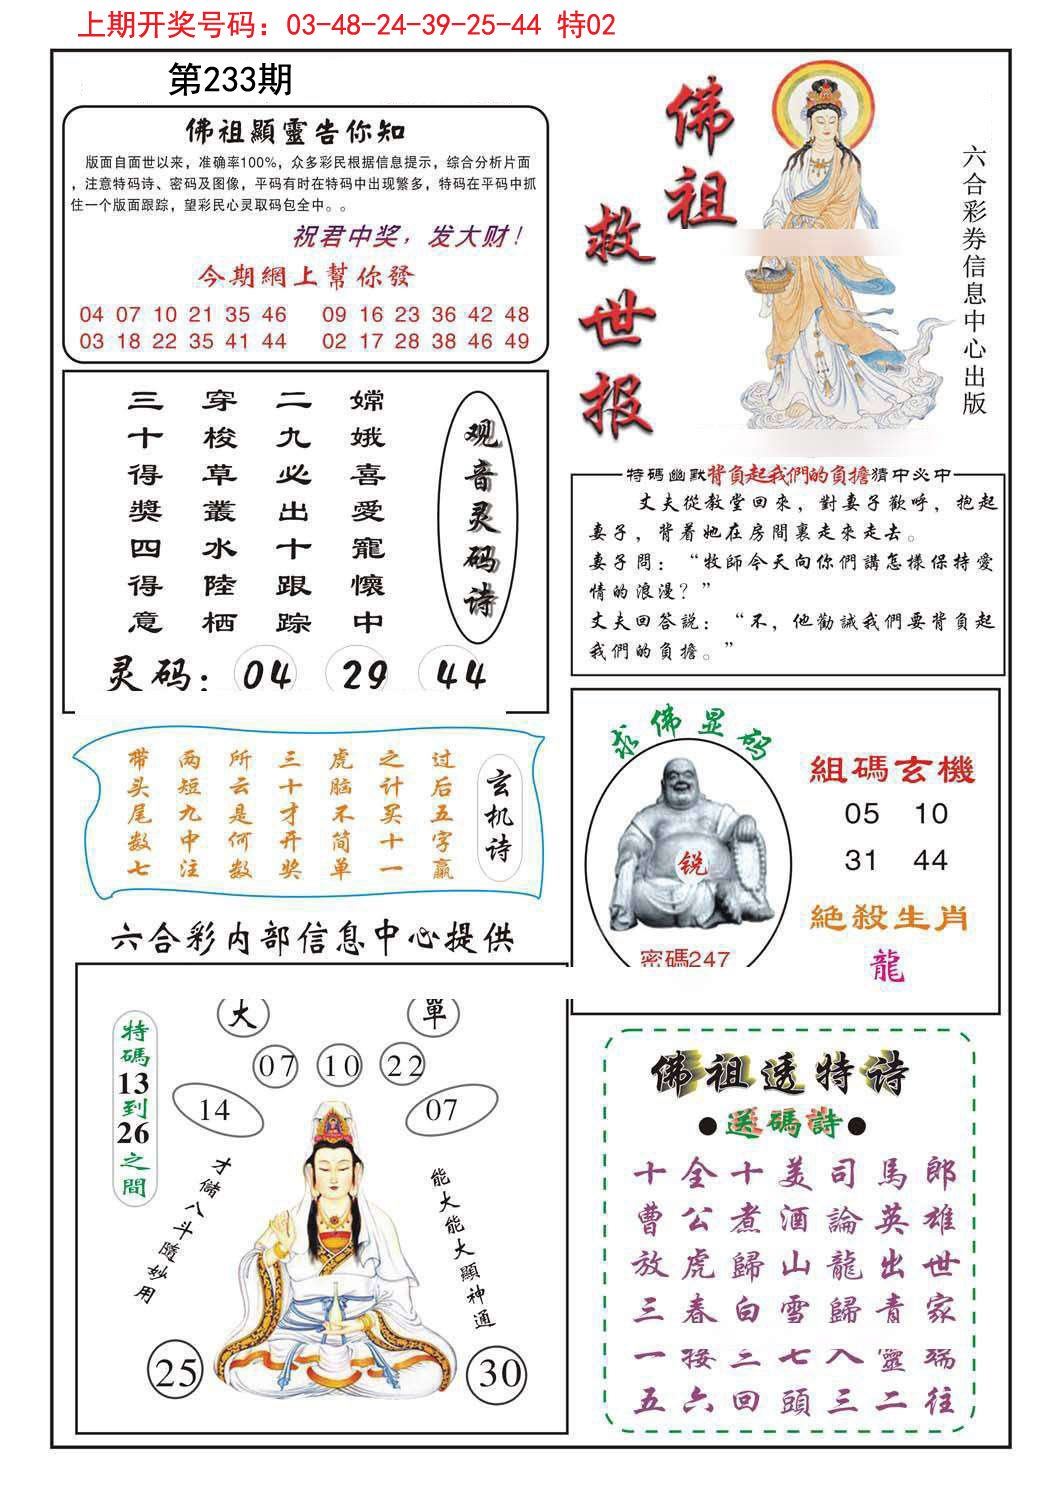 上期开奖号码：03-48-24-39-25-44 特02
第233期
佛祖顯靈告你知
版面自面世以来，准确率100%，众多彩民根据信息提示，综合分析片面
，注意特码诗、密码及图像，平码有时在特码中出现繁多，特码在平码中抓
住一个版面跟踪，望彩民心灵取码包全中。。
祝君中奖，发大财！
今期網上幫你發
04 07 10 21 35 46 09 16 23 36 42 48
03 18 22 35 41 44 02 17 28 38 46 49
佛祖
救世报
六合彩券信息中心出版
观音灵码诗
嫦娥喜愛寵懷中
二九必出十跟踪
穿梭草叢水陸栖
三十得獎四得意
灵码：04 29 44
特碼幽默背負起我們的負擔猜中必中
丈夫從教堂回來，對妻子歡呼，抱起
妻子，背着她在房間裏走來走去。
妻子問：“牧師今天向你們講怎樣保持愛
情的浪漫？”
丈夫回答説：“不，他勸誡我們要背負起
我們的負擔。”
玄机诗
过后五字赢
之计买十一
虎脑不简单
三十才开奖
所云是何数
两短九中注
带头尾数七
求佛显码
锐
密碼247
組碼玄機
05 10
31 44
絕殺生肖
龍
六合彩内部信息中心提供
大 單
07 10 22
14 07
特碼13到26之間
才儲八斗隨妙用
能大能大顯神通
25 30
佛祖透特诗
●送碼詩●
十全十美司馬郎
曹公煮酒論英雄
放虎歸山龍出世
三春白雪歸青家
一接二七入靈端
五六回頭三二往